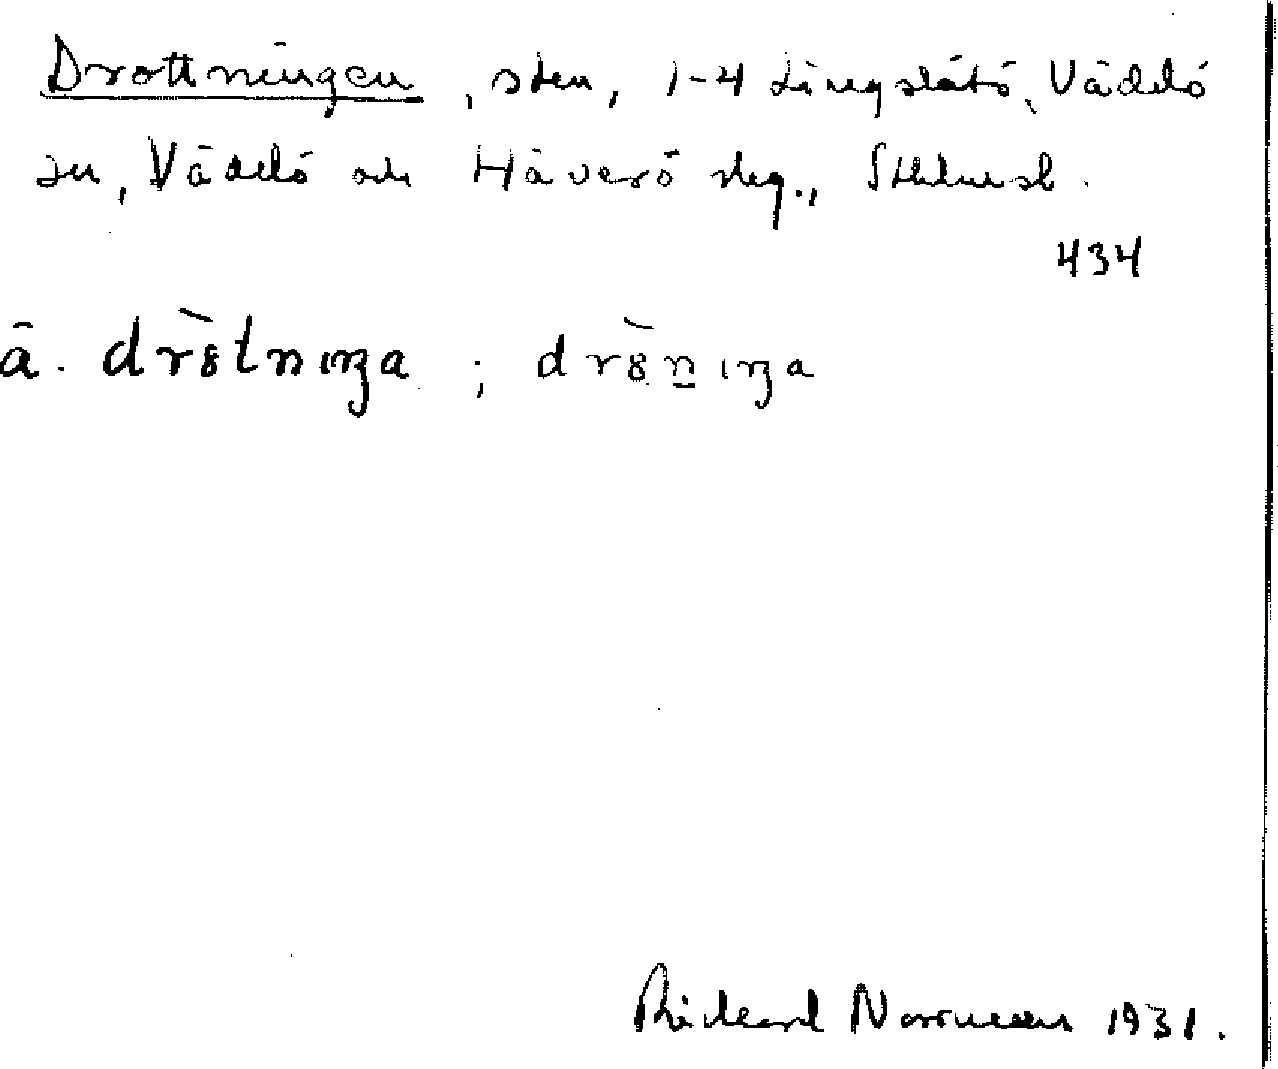 Drottningen, sten, 1-4 Lingslätö, Väddö
sn, Väddö och Häverö skg., Sthlms l.
434
ā. dr8̀tnıŋa ; dr8̀n̲ıŋa
Rickard Norrman 1931.